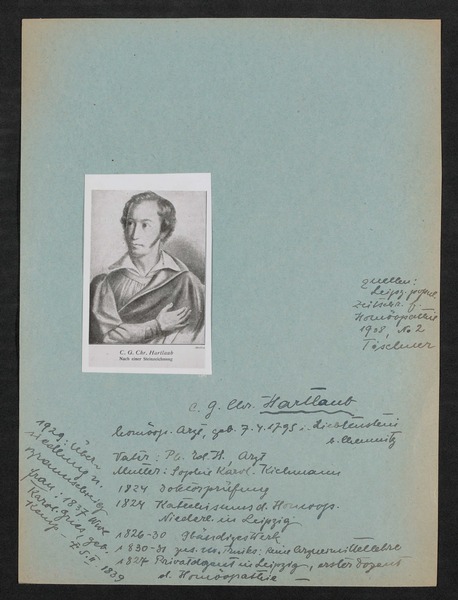 C. G. Chr. Hartlaub
Nach einer Steinzeichnung
Quellen:
Leipz. popul.
Zeitschr. f.
Homöopathie
1938, No 2
Tischner
C. G. Chr. Hartlaub
homöop. Arzt, geb. 7.4.1795 i. Lichtenstein
b. Chemnitz
Vater: Arzt
Mutter: Sophie Karol.
1824 Doktorprüfung
1824 Katechismus d. Homöop.
Niederl. in Leipzig
1826-30 bändiges Werk
1830-31 zus. m. Trinks: reine Arzneimittellehre
1827 Privatdozent in Leipzig, erster Dozent
d. Homöopathie
Über-
siedlung n.
Braunschweig
Frau: 1837
Karol. geb.
1839